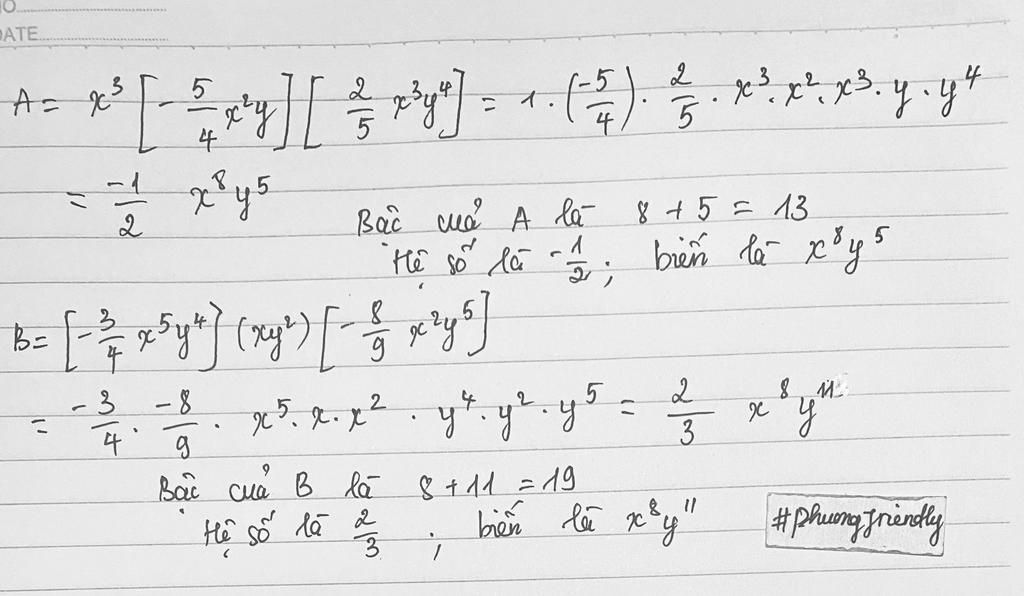 NO
DATE
A = x³ [-5/4 x²y] [2/5 x³y⁴] = 1 · (-5/4) · 2/5 · x³ · x² · x³ · y · y⁴
= -1/2 x⁸y⁵
Bậc cuả A là 8 + 5 = 13
Hệ số là -1/2 ; biến là x⁸y⁵
B = [-3/4 x⁵y⁴] (xy²) [-8/9 x²y⁵]
= -3/4 · -8/9 · x⁵ · x · x² · y⁴ · y² · y⁵ = 2/3 x⁸y¹¹
Bậc cuả B là 8 + 11 = 19
Hệ số là 2/3 ; biến là x⁸y¹¹
#phuongfriendly